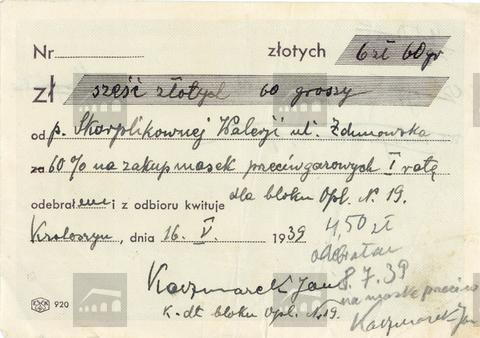 Nr złotych 6 zł 60 gr
zł sześć złotych 60 groszy
od p. Skorplikownej Walerji ul. Zdunowska
za 60% na zakup masek przeciwgazowych I ratę
dla bloku Opl. N. 19.
odebrałem i z odbioru kwituję
Krotoszyn, dnia 16. V. 1939
4,50 zł
odebrałam
8.7.39
na maskę przeciw
Kaczmarek Jan
Kaczmarek Jan
k-dt bloku Opl. N. 19.
920